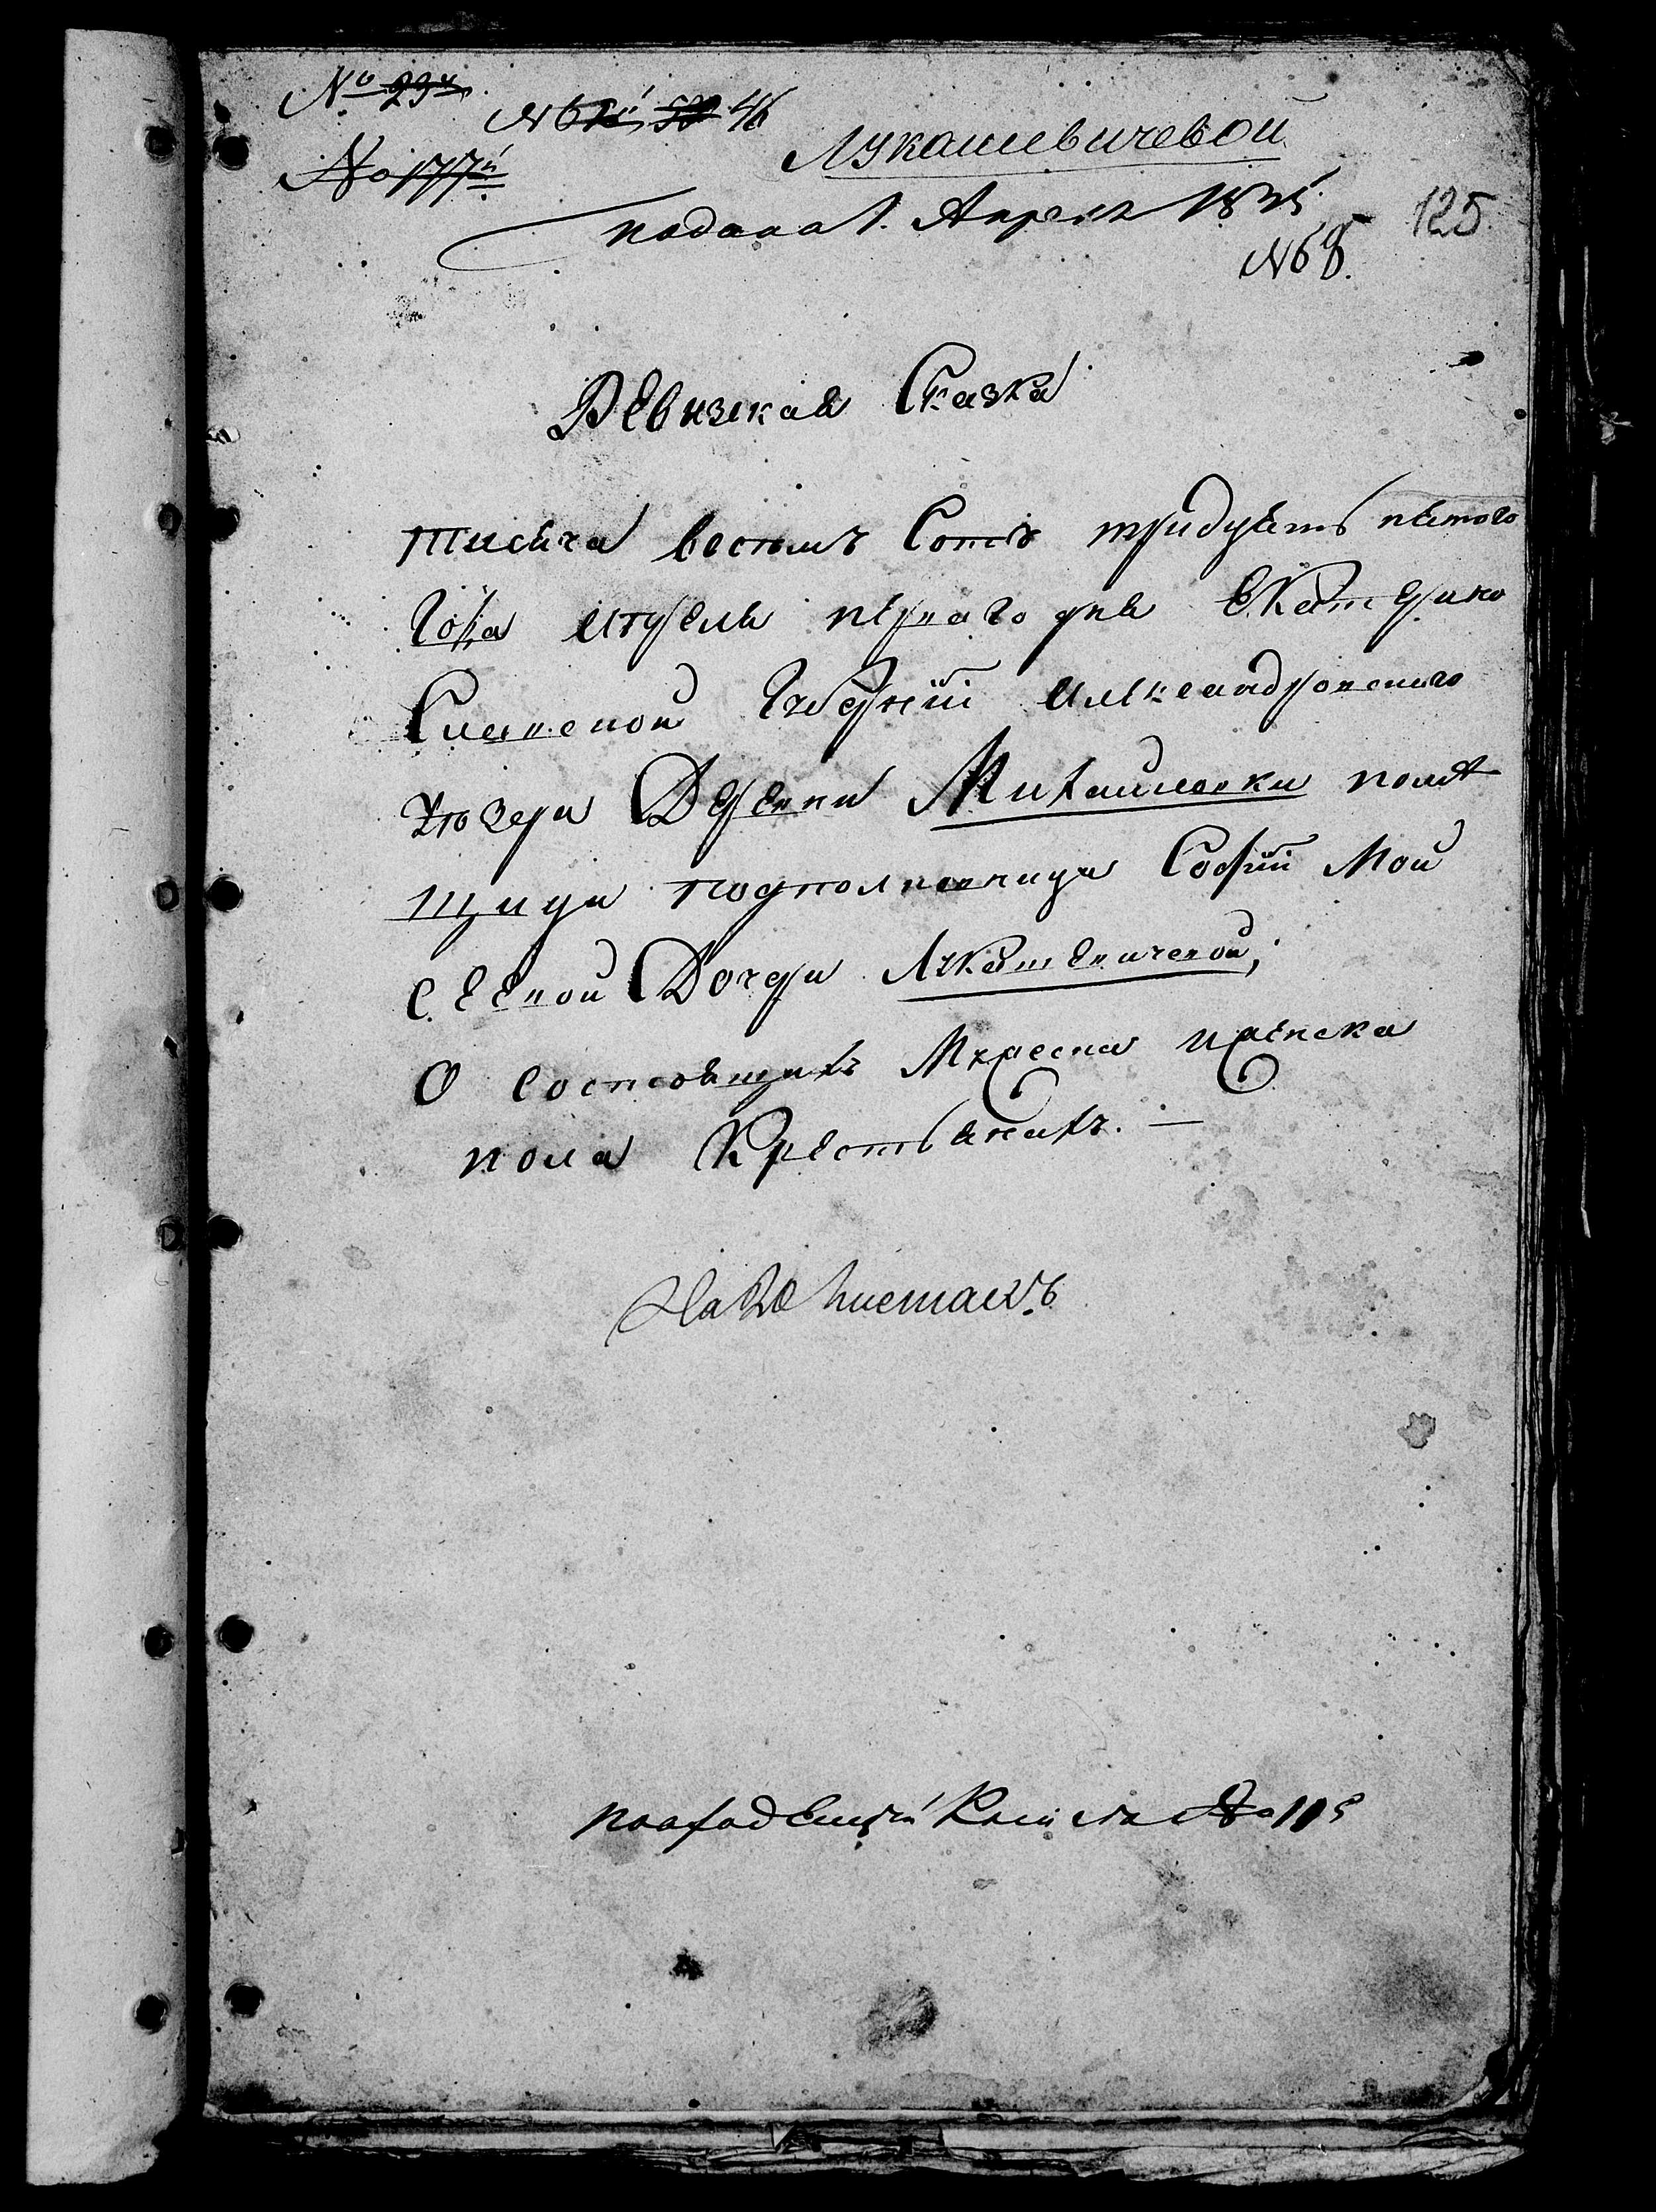 № 23й
№ 61й 59 46
Лукашевичевой
№ 177й
подана 1. Апреля 1835
125
№ 68.
Ревизская Сказка
тысяча восемъ Сотъ тридцать пятого
Года Апреля перваго дня Екатерино
Славской Губерній Александровского
уезда Деревни Михайловки поме
щицы подполковницы Софій Мой
сеевой Дочери Лукашевичевой;
О состоящихъ Мужеска и женска
пола Крестьянахъ. —
На листахъ
№ 115